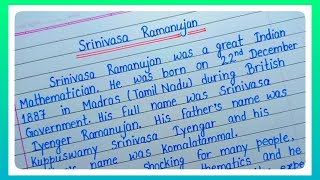 Srinivasa Ramanujan
Srinivasa Ramanujan was a great Indian
Mathematician. He was born on 22nd December
1887 in Madras (Tamil Nadu) during British
Government. His full name was Srinivasa
Iyenger Ramanujan. His father's name was
Kuppuswamy Srinivasa Iyengar and his
name was Komalatammal.
shocking for many people.
thematics and he
the expe